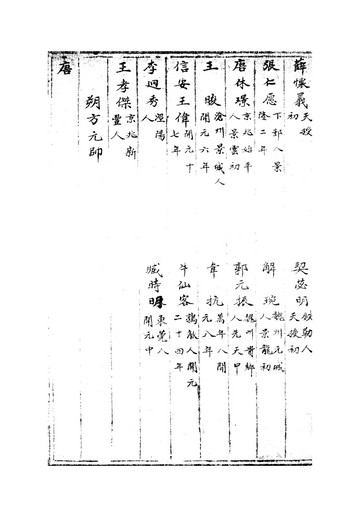 薛懷義天授初　契苾明敕勒人天授初
張仁愿下邽人景隆二年　解琬魏州元城人景龍初
唐休璟京兆始平人景雲初　郭元振魏州貴鄉人先天中
王晙滄州景城人開元六年　韋抗萬年人開元八年
信安王偉開元十七年　牛仙客鶉觚人開元二十四年
李迥秀涇陽人　臧時明東莞人開元中
王孝傑京兆新豐人
朔方元帥
唐